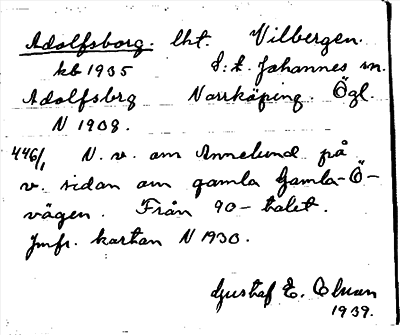 Adolfsborg. lht. Vilbergen.
kb 1935 S:t Johannes sn.
Adolfsbrg Norrköping. Ögl.
N 1908.
446/1 N. v. om Annelund på
v. sidan om gamla Gamla-Ö-
vägen. Från 90-talet.
Jmfr. kartan N 1930.
Gustaf E.
1939.